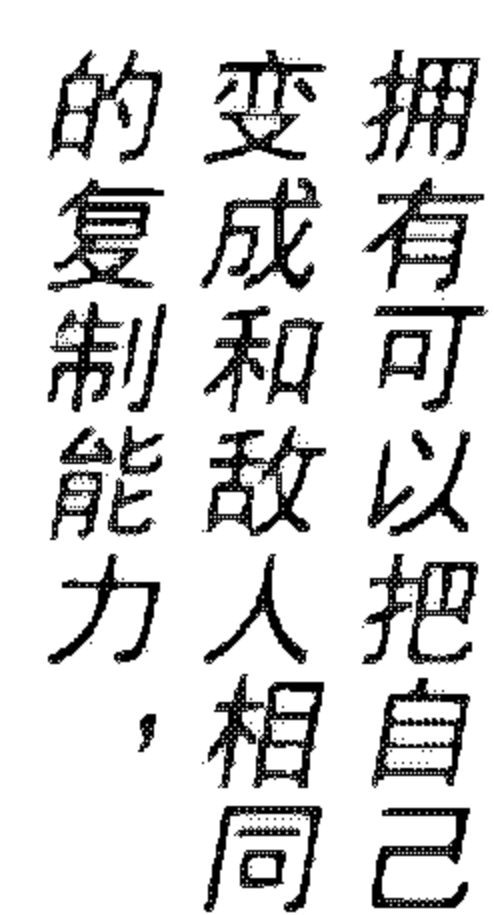 拥有可以把自己
变成和敌人相同
的复制能力，